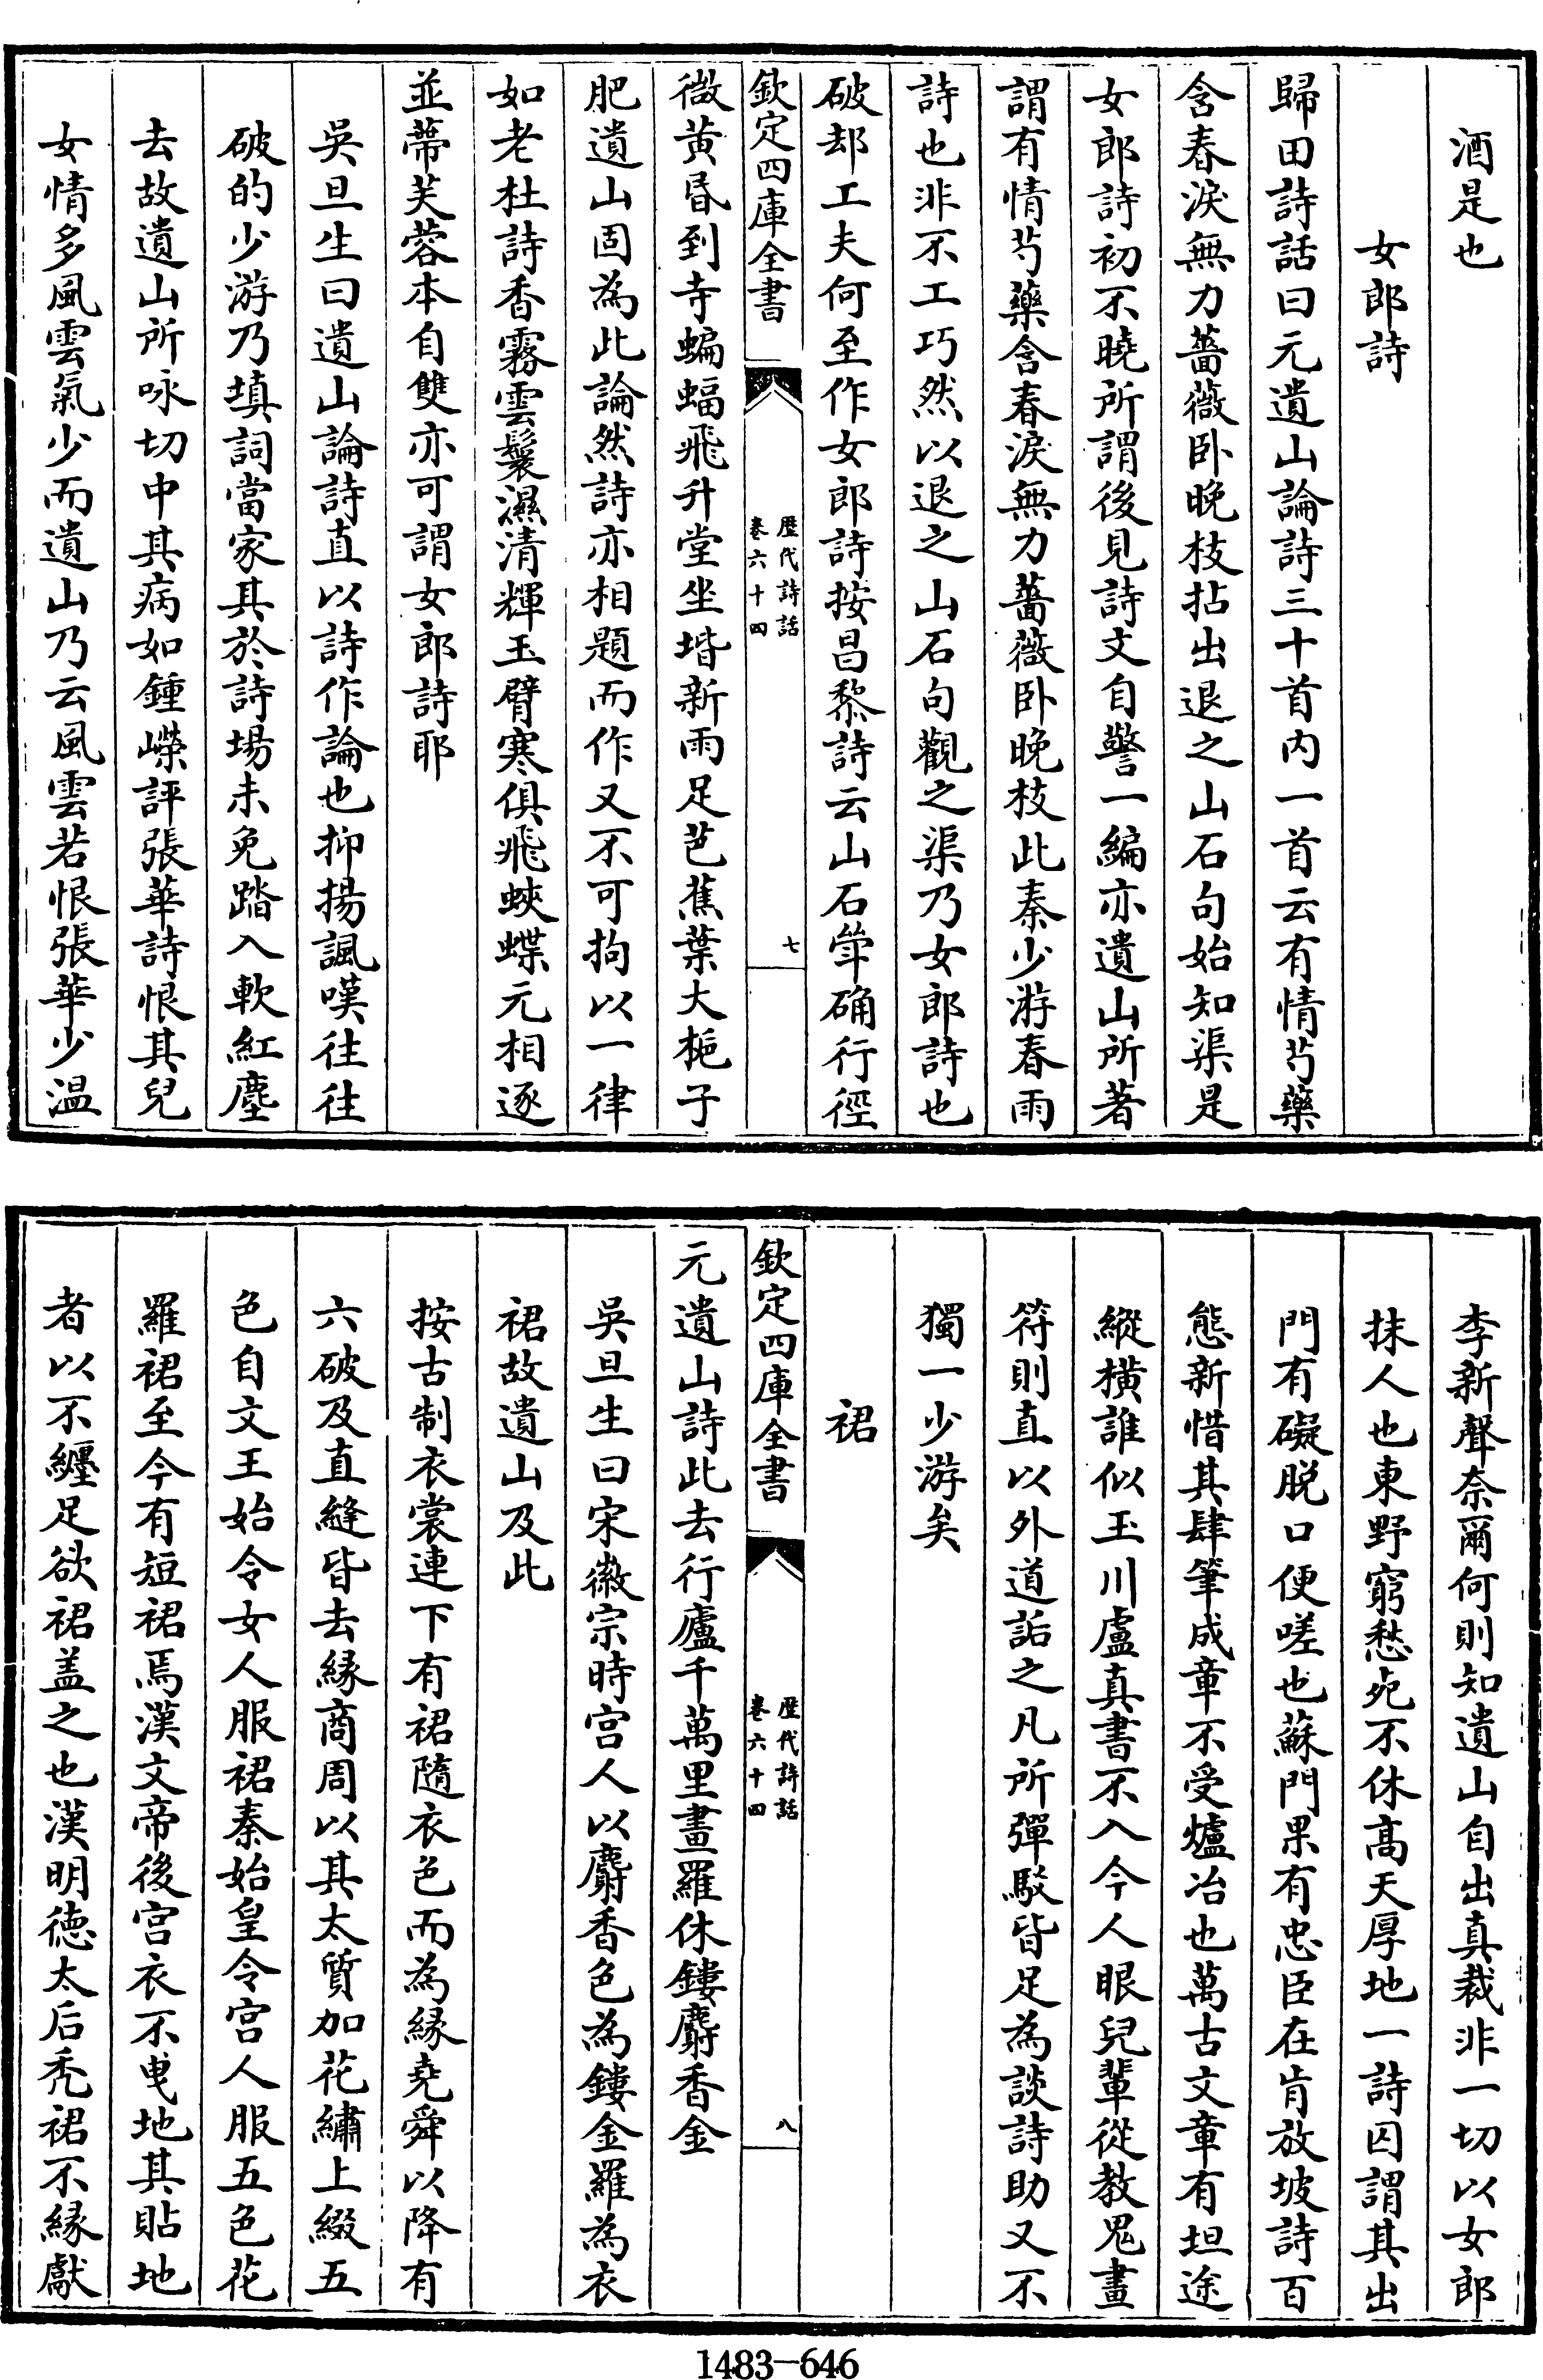 酒是也
女郎詩
歸田詩話曰元遺山論詩三十首内一首云有情芍藥
含春淚無力薔薇卧晚枝拈出退之山石句始知渠是
女郎詩初不曉所謂後見詩文自警一編亦遺山所著
謂有情芍藥含春淚無力薔薇卧晚枝此秦少游春雨
詩也非不工巧然以退之山石句觀之渠乃女郎詩也
破却工夫何至作女郎詩按昌黎詩云山石犖确行徑
欽定四庫全書
歴代詩話
卷六十四
七
微黄昏到寺蝙蝠飛升堂坐堦新雨足芭蕉葉大梔子
肥遺山固為此論然詩亦相題而作又不可拘以一律
如老杜詩香霧雲鬟濕清輝玉臂寒俱飛蛺蝶元相逐
並蔕芙蓉本自雙亦可謂女郎詩耶
吳旦生曰遺山論詩直以詩作論也抑揚諷嘆往往
破的少游乃填詞當家其於詩場未免踏入軟紅塵
去故遺山所咏切中其病如鍾嶸評張華詩恨其兒
女情多風雲氣少而遺山乃云風雲若恨張華少温
李新聲奈爾何則知遺山自出真裁非一切以女郎
抹人也東野窮愁死不休高天厚地一詩囚謂其出
門有礙脱口便嗟也蘇門果有忠臣在肯放坡詩百
態新惜其肆筆成章不受爐冶也萬古文章有坦途
縱横誰似玉川盧真書不入今人眼兒輩從教鬼畫
符則直以外道詬之凡所彈駁皆足為談詩助又不
獨一少游矣
裙
欽定四庫全書
歴代詩話
卷六十四
八
元遺山詩此去行廬千萬里畫羅休鏤麝香金
吳旦生曰宋徽宗時宫人以麝香色為鏤金羅為衣
裙故遺山及此
按古制衣裳連下有裙隨衣色而為緣堯舜以降有
六破及直縫皆去緣商周以其太質加花繡上綴五
色自文王始令女人服裙秦始皇令宫人服五色花
羅裙至今有短裙焉漢文帝後宫衣不曳地其貼地
者以不纏足欲裙盖之也漢明德太后秃裙不緣獻
1483-646